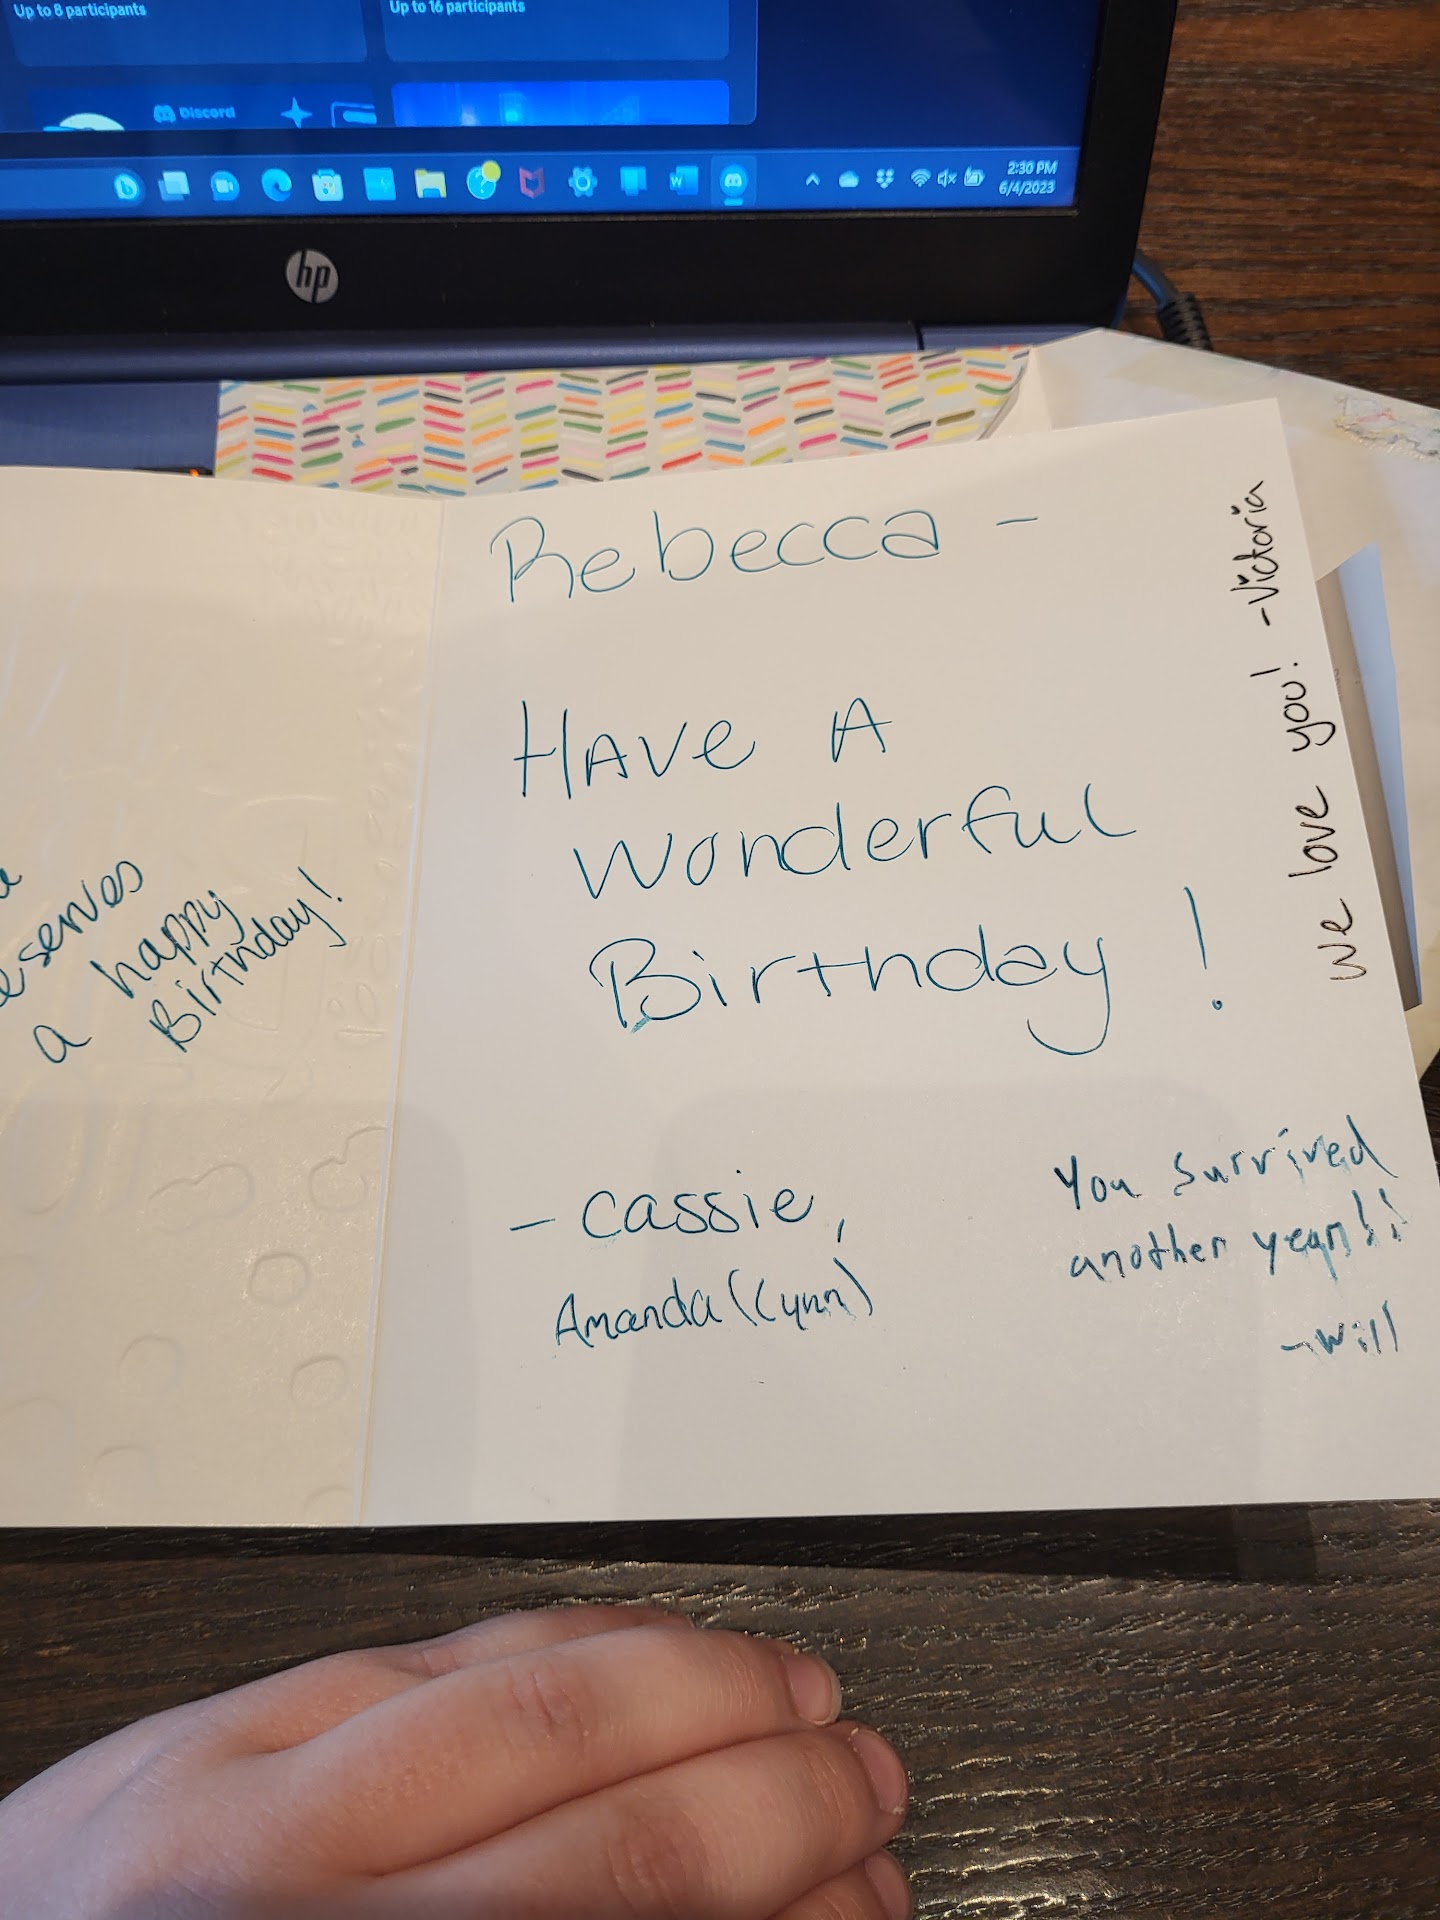 Up to 8 participants
Up to 16 participants
Discord
2:30 PM
6/4/2023
hp
eserves
a happy
Birthday!
Rebecca -
Have A
Wonderful
Birthday!
- Cassie,
Amanda (Lynn)
You survived
another year!!
- Will
we love you! - Victoria